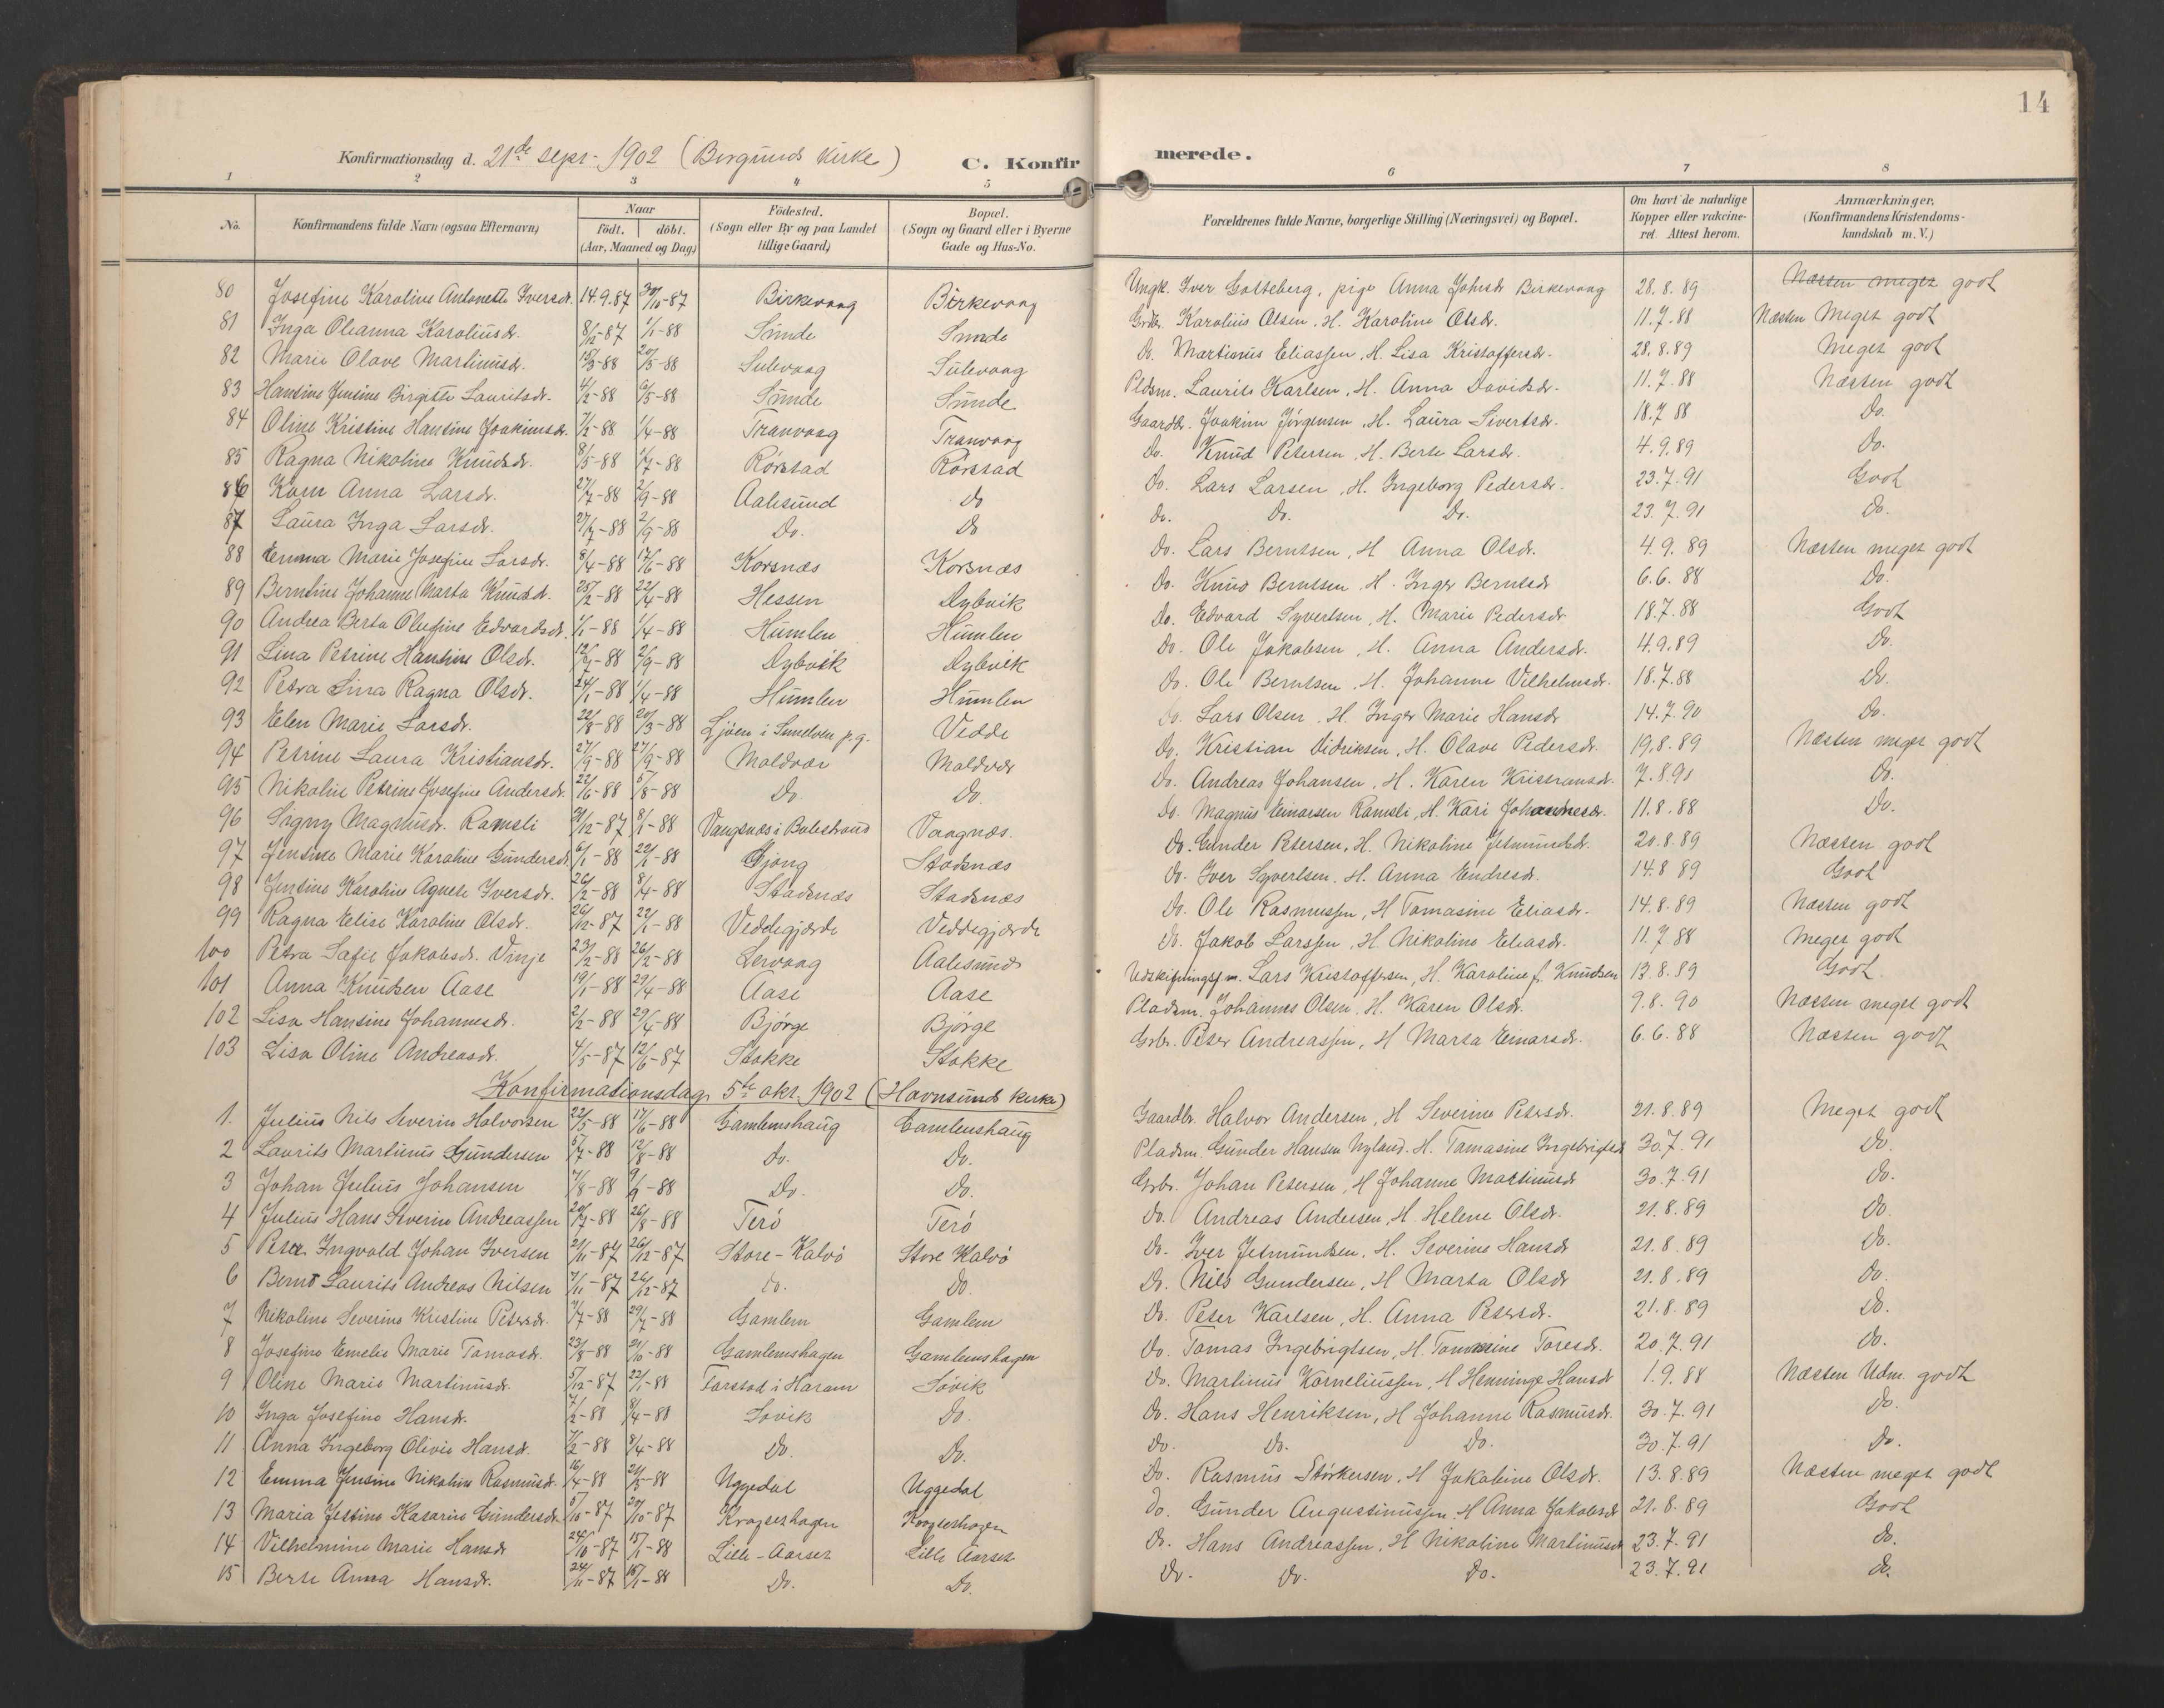 14
Konfirmationsdag d. 21de sept. 1902 (Borgunds Kirke) C. Konfirmerede.
1 2 3 4 5 6 7 8
No. Konfirmandens fulde Navn (ogsaa Efternavn) Naar födt. döbt. (Aar, Maaned og Dag) Födested. (Sogn eller By og paa Landet tillige Gaard) Bopæl. (Sogn og Gaard eller i Byerne Gade og Hus-No. Forældrenes fulde Navne, borgerlige Stilling (Næringsvei) og Bopæl. Om havt de naturlige Kopper eller vakcineret. Attest herom. Anmærkninger. (Konfirmandens Kristendomskundskab m. V.)
80 Josefine Karoline Antonette Iversdr. 14.9.87 30/10-87 Birkevaag Birkevaag Ungk. Iver Gotteberg, pige Anna Johnsdr Birkevaag 28.8.89 Næsten meget godt
81 Inga Oleanna Karoliusdr. 8/12-87 1/1-88 Sunde Sunde Grdbr. Karolius Olsen, H. Karoline Olsdr. 11.7.88 Næsten Meget godt
82 Marie Olave Martinusdr. 15/3-88 20/5-88 Sulevaag Sulevaag Do. Martinus Eliassen, H. Lisa Kristoffersdr. 28.8.89 Meget godt
83 Hansine Jensine Birgitte Lauritsdr. 4/2-88 6/5-88 Sunde Sunde Pldsm. Laurits Karlsen, H. Anna Davidsdr. 11.7.88 Næsten godt
84 Oline Kristine Hansine Joakimsdr. 7/2-88 1/4-88 Tranvaag Tranvaag Gaardbr. Joakim Jörgensen, H. Laura Sivertsdr. 18.7.88 Do.
85 Ragna Nikoline Knudsdr. 8/5-88 1/7-88 Rörstad Rörstad Do. Knud Petersen, H. Berte Larsdr. 4.9.89 Do.
86 Karn Anna Larsdr. 27/7-88 2/9-88 Aalesund Do Do. Lars Larsen, H. Ingeborg Pedersdr. 23.7.91 Godt
87 Laura Inga Larsdr. 27/7-88 2/9-88 Do. Do Do. Do. Do. 23.7.91 Do.
88 Emma Marie Josefine Larsdr. 8/4-88 17/6-88 Korsnæs Korsnæs Do. Lars Berntsen, H Anna Olsdr. 4.9.89 Næsten meget godt
89 Berntine Johanne Marta Knudsd. 25/2-88 22/4-88 Hessen Dybvik Do. Knud Berntsen, H. Inger Berntsdr 6.6.88 Do.
90 Andrea Berta Olufine Edvardsdr. 1/1-88 1/4-88 Humlen Humlen Do. Edvard Syvertsen, H. Marie Pedersdr 18.7.88 Godt
91 Lina Petrine Hansine Olsdr. 12/7-88 2/9-88 Dybvik Dybvik Do. Ole Jakobsen, H. Anna Andersdr. 4.9.89 Do.
92 Petra Lina Ragna Olsdr. 24/1-88 1/4-88 Humlen Humlen Do. Ole Berntsen, H. Johanne Vilhelmsdr. 18.7.88 Do.
93 Elen Marie Larsdr. 22/8-88 20/3-88 Ljöen i Sunelven p.g. Vedde Do. Lars Olsen. H. Inger Marie Hansdr 14.7.90 Do.
94 Petrine Laura Kristiansdr. 27/9-88 27/9-88 Moldvær Moldvær Do. Kristian Didriksen, H. Olave Pedersdr. 19.8.89 Næsten meget godt
95 Nikoline Petrine Josefine Andersdr. 22/6-88 5/8-88 Do. Do. Do. Andreas Johansen, H. Karen Kristiansdr. 7.8.91 Do.
96 Signy Magnusdr. Ramsli 31/12-87 8/1-88 Vangsnæs i Balestrand Vaagnæs. Do. Magnus Einarsen Ramsli, H. Kari Johannesdr. 11.8.88 Do.
97 Jensine Marie Karoline Gundersdr. 6/1-88 22/1-88 Gjöng Stadsnæs Do. Gunder Petersen, H. Nikoline Jetmundsdr. 20.8.89 Næsten godt
98 Jensine Karoline Agnete Iversdr. 26/2-88 8/4-88 Stadsnæs Stadsnæs Do. Iver Syvertsen, H. Anna Endresdr. 14.8.89 Godt
99 Ragna Elise Karoline Olsdr. 26/12-87 22/1-88 Veddegjærde Veddegjærde Do. Ole Rasmussen, H Tomasine Eliasdr. 14.8.89 Næsten godt
100 Petra Safie Jakobsdr. Vinje 23/2-88 26/2-88 Lervaag Aalesund Do. Jakob Larssen, H. Nikoline Eliasdr. 11.7.88 Meget godt
101 Anna Knudsen Aase 19/1-88 29/4-88 Aase Aase Udskiftningsfm. Lars Kristoffersen, H. Karoline f. Knudsen 13.8.89 Godt.
102 Lisa Hansine Johannesdr. 2/2-88 29/4-88 Björge Björge Pladsm. Johannes Olsen, H. Karen Olsdr. 9.8.90 Næsten meget godt
103 Lisa Oline Andreasdr. 4/5-87 12/6-87 Stokke Stokke Grbr. Peter Andreassen, H Marta Einarsdr. 6.6.88 Næsten godt
Konfirmationsdag 5te okt. 1902 (Havnsunds kirke)
1. Julius Nils Severin Halvorsen 22/5-88 17/6-88 Gamlemshaug Gamlemshaug Gaardbr. Halvor Andersen, H Severine Petersdr. 21.8.89 Meget godt
2 Laurits Martinus Gundersen 5/7-88 12/8-88 Do. Do. Pladsm. Gunder Hansen Nyland. H. Tomasine Ingebrigtsdr 30.7.91 Do.
3 Johan Julius Johansen 7/8-88 9/9-88 Do. Do. Grbr. Johan Petersen, H Johanne Martinusdr 30.7.91 Do.
4 Julius Hans Severin Andreassen 20/7-88 26/8-88 Terö Terö Do. Andreas Andersen, H. Helene Olsdr. 21.8.89 Do.
5 Peter Ingvald Johan Iversen 21/11-87 26/12-87 Store-Kalvö Store Kalvö Do. Iver Jetmundsen, H. Severine Hansdr 21.8.89 Do.
6 Bernt Laurits Andreas Nilsen 7/11-87 26/12-87 Do. Do. Do. Nils Gundersen, H Marta Olsdr 21.8.89 Do.
7 Nikoline Severine Kristine Petersdr. 7/7-88 29/7-88 Gamlem Gamlem Do. Peter Karlsen, H. Anna Petersdr. 21.8.89 Do.
8 Josefine Emelie Marie Tomasdr. 23/8-88 21/10-88 Gamlemshagen Gamlemshagen Do. Tomas Ingebrigtsen, H. Tommine Toresdr. 20.7.91 Do.
9 Oline Marie Martinusdr. 5/12-87 22/1-88 Farstad i Haram Sövik Do. Martinus Korneliussen, H Henninge Hansdr 1.9.88 Næsten Udm. godt
10 Inga Josefine Hansdr. 7/2-88 8/4-88 Sövik Do. Do. Hans Henriksen, H Johanne Rasmusdr. 30.7.91 Do.
11 Anna Ingeborg Olivie Hansdr. 7/2-88 8/4-88 Do. Do. Do. Do. Do. 30.7.91 Do.
12 Emma Jensine Nikoline Rasmusdr. 16/4-88 21/5-88 Uggedal Uggedal Do. Rasmus Störkersen, H Jakobine Olsdr. 13.8.89 Næsten meget godt
13 Maria Jestine Katarine Gundersdr. 5/10-87 20/10-87 Kragseshagen Kragseshagen Do. Gunder Augustinussen, H Anna Jakobsdr 21.8.89 Godt
14 Vilhelmine Marie Hansdr 24/10-87 15/1-88 Lille-Aarset Lille Aarset Do. Hans Andreassen, H Nikoline Martinusdr 23.7.91 Do.
15 Berte Anna Hansdr. 24/11-87 15/1-88 Do. Do. Do. Do. Do. 23.7.91 Do.